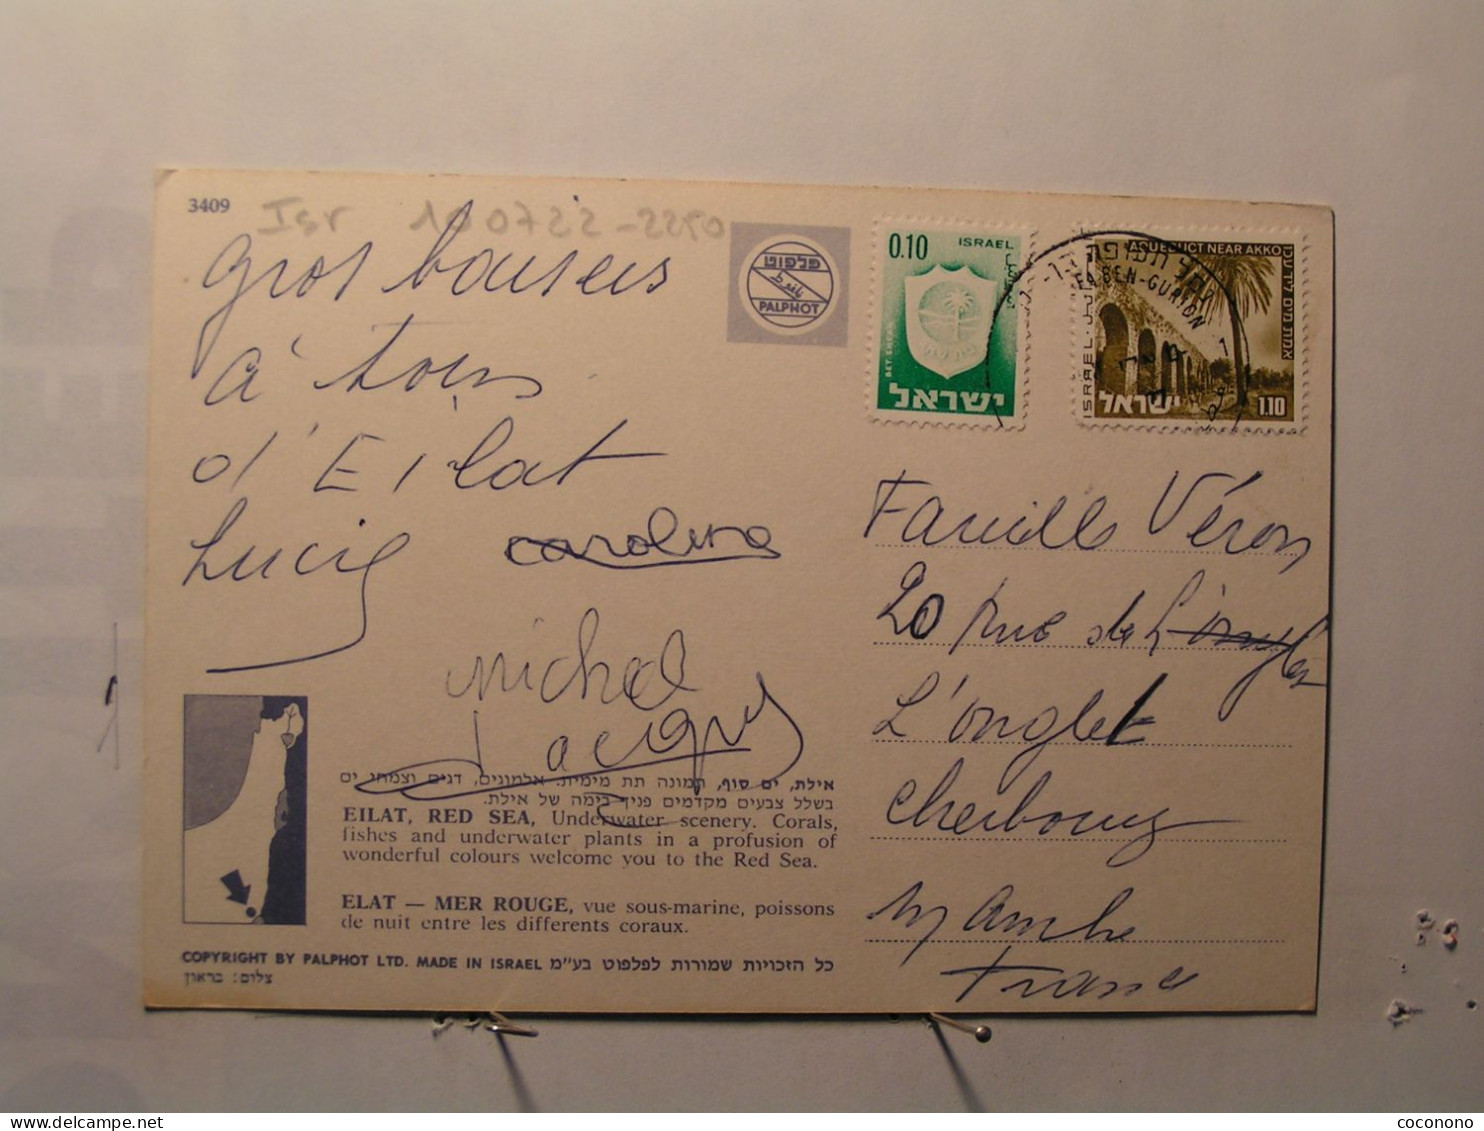 3409
Isr 100722-2250
Gros baisers
à tous
d'Eilat
Lucie
Caroline
Michel
Jacques
פלפוט
PALPHOT
0.10 ISRAEL
BET SHEAN
ישראל
AQUEDUCT NEAR AKKO
ISRAEL
ישראל 1.10
BEN-GURION
Famille Véron
20 Rue de
L'onglet
Cherbourg
Manche
France
אילת, ים סוף, תמונה תת מימית. אלמונים, דגים וצמחי ים
בשלל צבעים מקדמים פניך בימה של אילת.
EILAT, RED SEA, Underwater scenery. Corals,
fishes and underwater plants in a profusion of
wonderful colours welcome you to the Red Sea.
ELAT — MER ROUGE, vue sous-marine, poissons
de nuit entre les differents coraux.
COPYRIGHT BY PALPHOT LTD. MADE IN ISRAEL כל הזכויות שמורות לפלפוט בע"מ
צלום: בראון
coconono